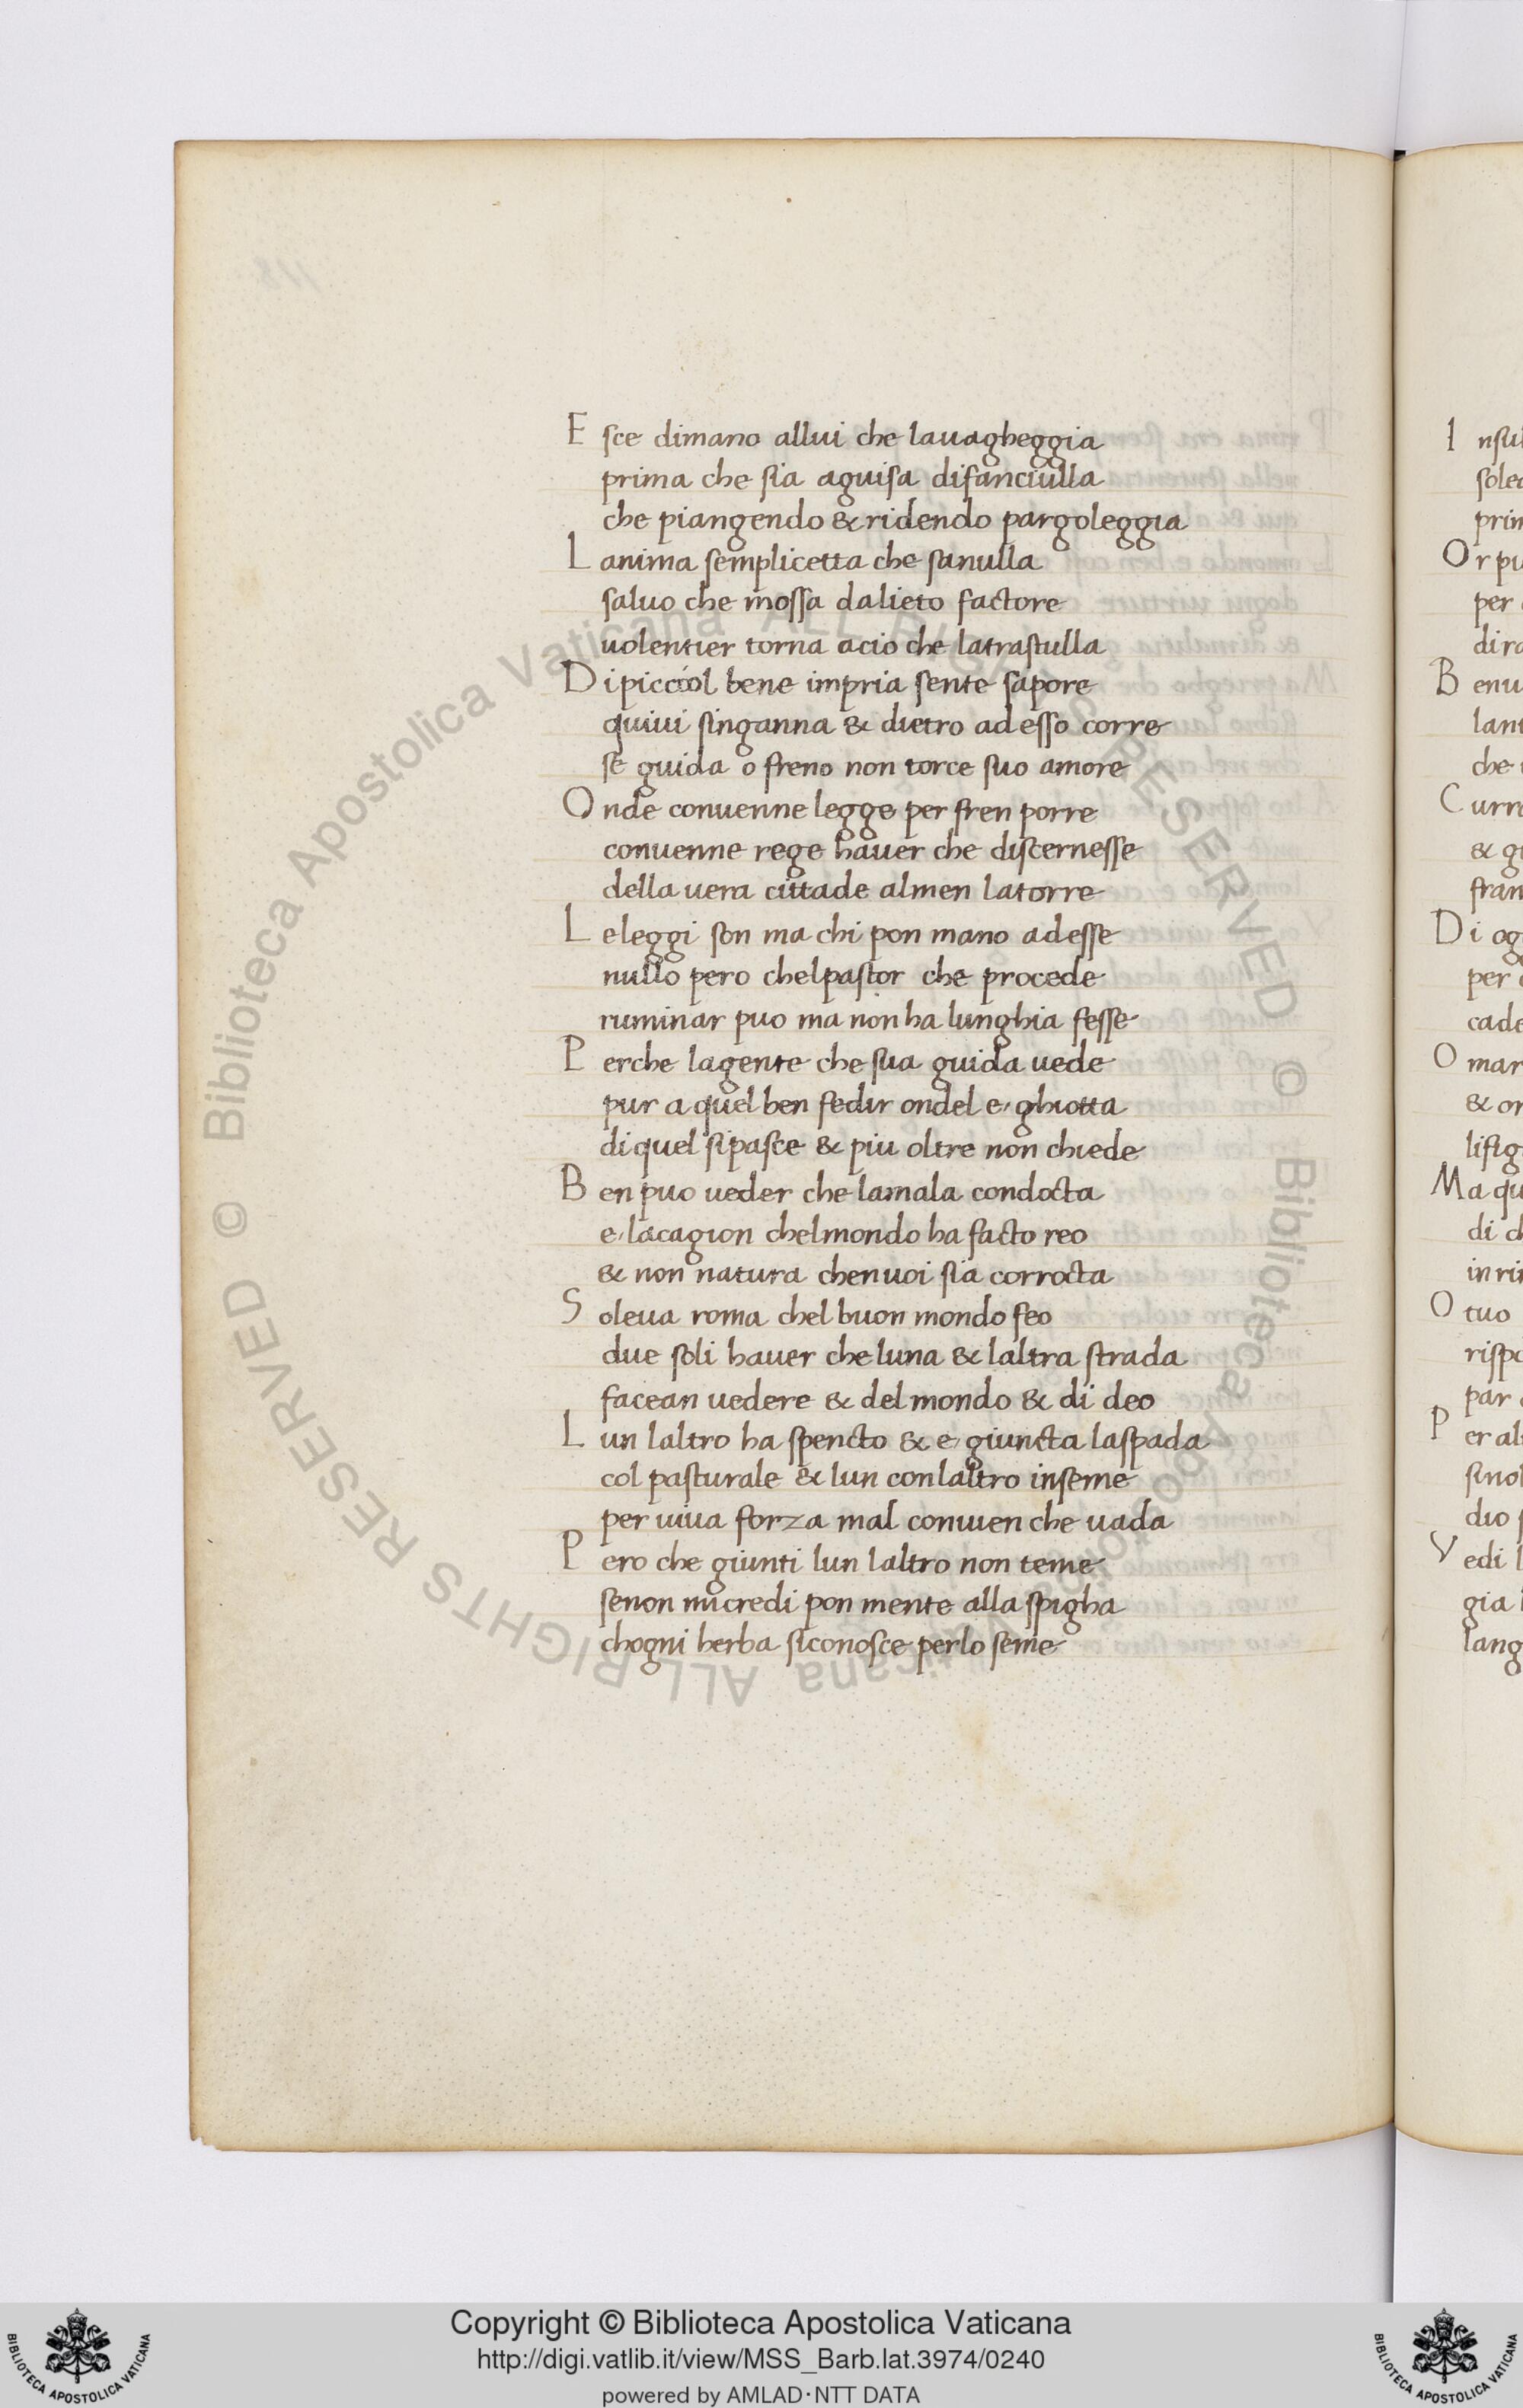 E sce dimano allui che lauagheggia
prima che sia aguisa difanciulla
che piangendo & ridendo pargoleggia
L anima semplicetta che sanulla
saluo che mossa dalieto factore
uolentier torna acio che latrastulla
D i picciol bene impria sente sapore
quiui singanna & dietro adesso corre
se guida o freno non torce suo amore
O nde conuenne legge per fren porre
conuenne rege hauer che discernesse
della uera cittade almen latorre
L e leggi son ma chi pon mano adesse
nullo pero chelpastor che procede
ruminar puo ma non ha lunghia fesse
P erche lagente che sua guida uede
pur a quel ben fedir ondel e ghiotta
di quel sipasce & piu oltre non chiede
B en puo ueder che lamala condocta
e lacagion chelmondo ha facto reo
& non natura chenuoi sia corrocta
S oleua roma chel buon mondo feo
due soli hauer che luna & laltra strada
facean uedere & del mondo & di deo
L un laltro ha spencto & e giuncta laspada
col pasturale & lun conlaltro inseme
per uiua forza mal conuien che uada
P ero che giunti lun laltro non teme
senon micredi pon mente alla spigha
chogni herba siconosce perlo seme
I nsu
sole
prim
O r pu
per
dira
B enu
lant
che
C urra
& gi
fran
D i og
per
cade
O mar
& or
lisig
M a qu
di ch
inri
O tuo
rispo
par
P er al
sino
dio
V edi l
gia
lang
© Biblioteca Apostolica Vaticana ALL RIGHTS RESERVED © Biblioteca Apostolica Vaticana ALL RIGHTS RESERVED
Copyright © Biblioteca Apostolica Vaticana
http://digi.vatlib.it/view/MSS_Barb.lat.3974/0240
powered by AMLAD·NTT DATA
BIBLIOTECA APOSTOLICA VATICANA
BIBLIOTECA APOSTOLICA VATICANA